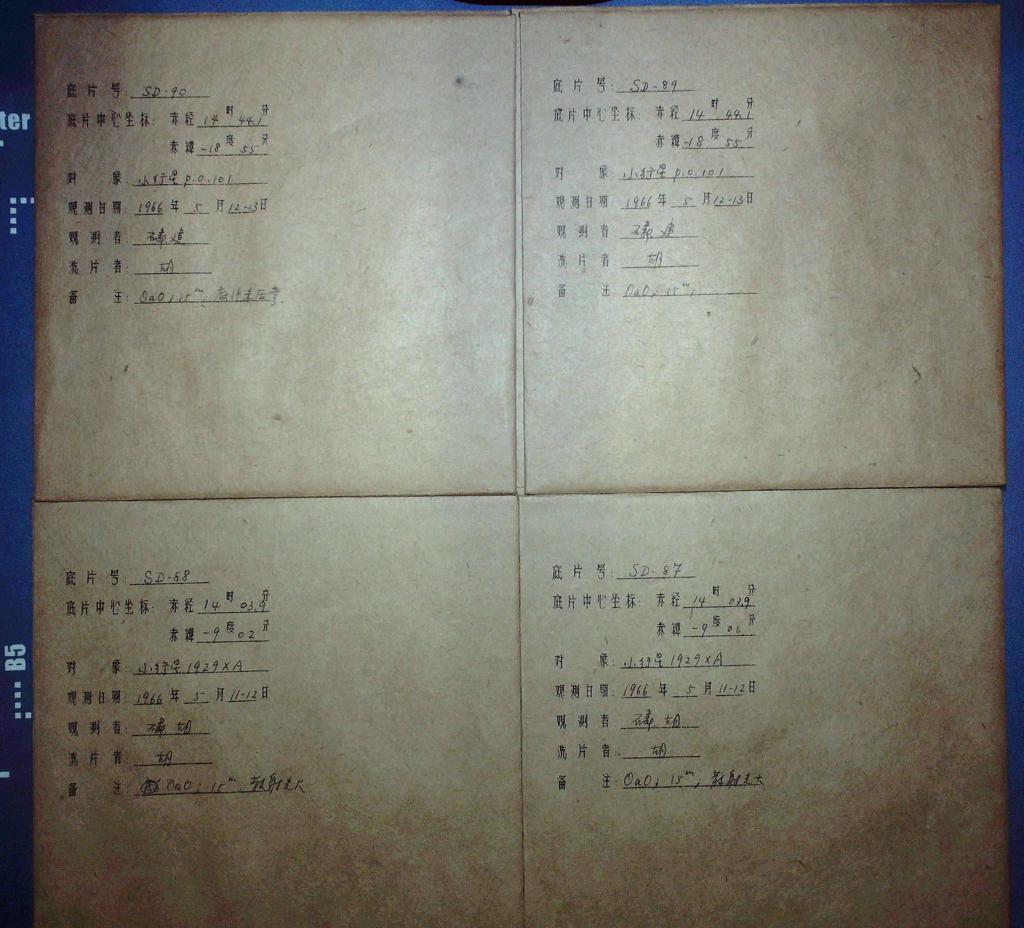 底片号: SD-90
底片中心坐标: 赤经 14时 44.1分
赤纬 -18度 55分
对 象: 小行星 P.O.101
观测日期: 1966年 5月 12-13日
观测者:
洗片者: 胡
备 注: OaO; 15ᵐ;
底片号: SD-89
底片中心坐标: 赤经 14时 44.1分
赤纬 -18度 55分
对 象: 小行星 P.O.101
观测日期: 1966年 5月 12-13日
观测者:
洗片者: 胡
备 注: OaO; 15ᵐ;
底片号: SD-88
底片中心坐标: 赤经 14时 03.9分
赤纬 -9度 02分
对 象: 小行星 1929XA
观测日期: 1966年 5月 11-12日
观测者: 胡
洗片者: 胡
备 注: OaO; 15ᵐ, 散射光大
底片号: SD-87
底片中心坐标: 赤经 14时 03.9分
赤纬 -9度 02分
对 象: 小行星 1929XA
观测日期: 1966年 5月 11-12日
观测者: 胡
洗片者: 胡
备 注: OaO; 15ᵐ, 散射光大
ter
B5